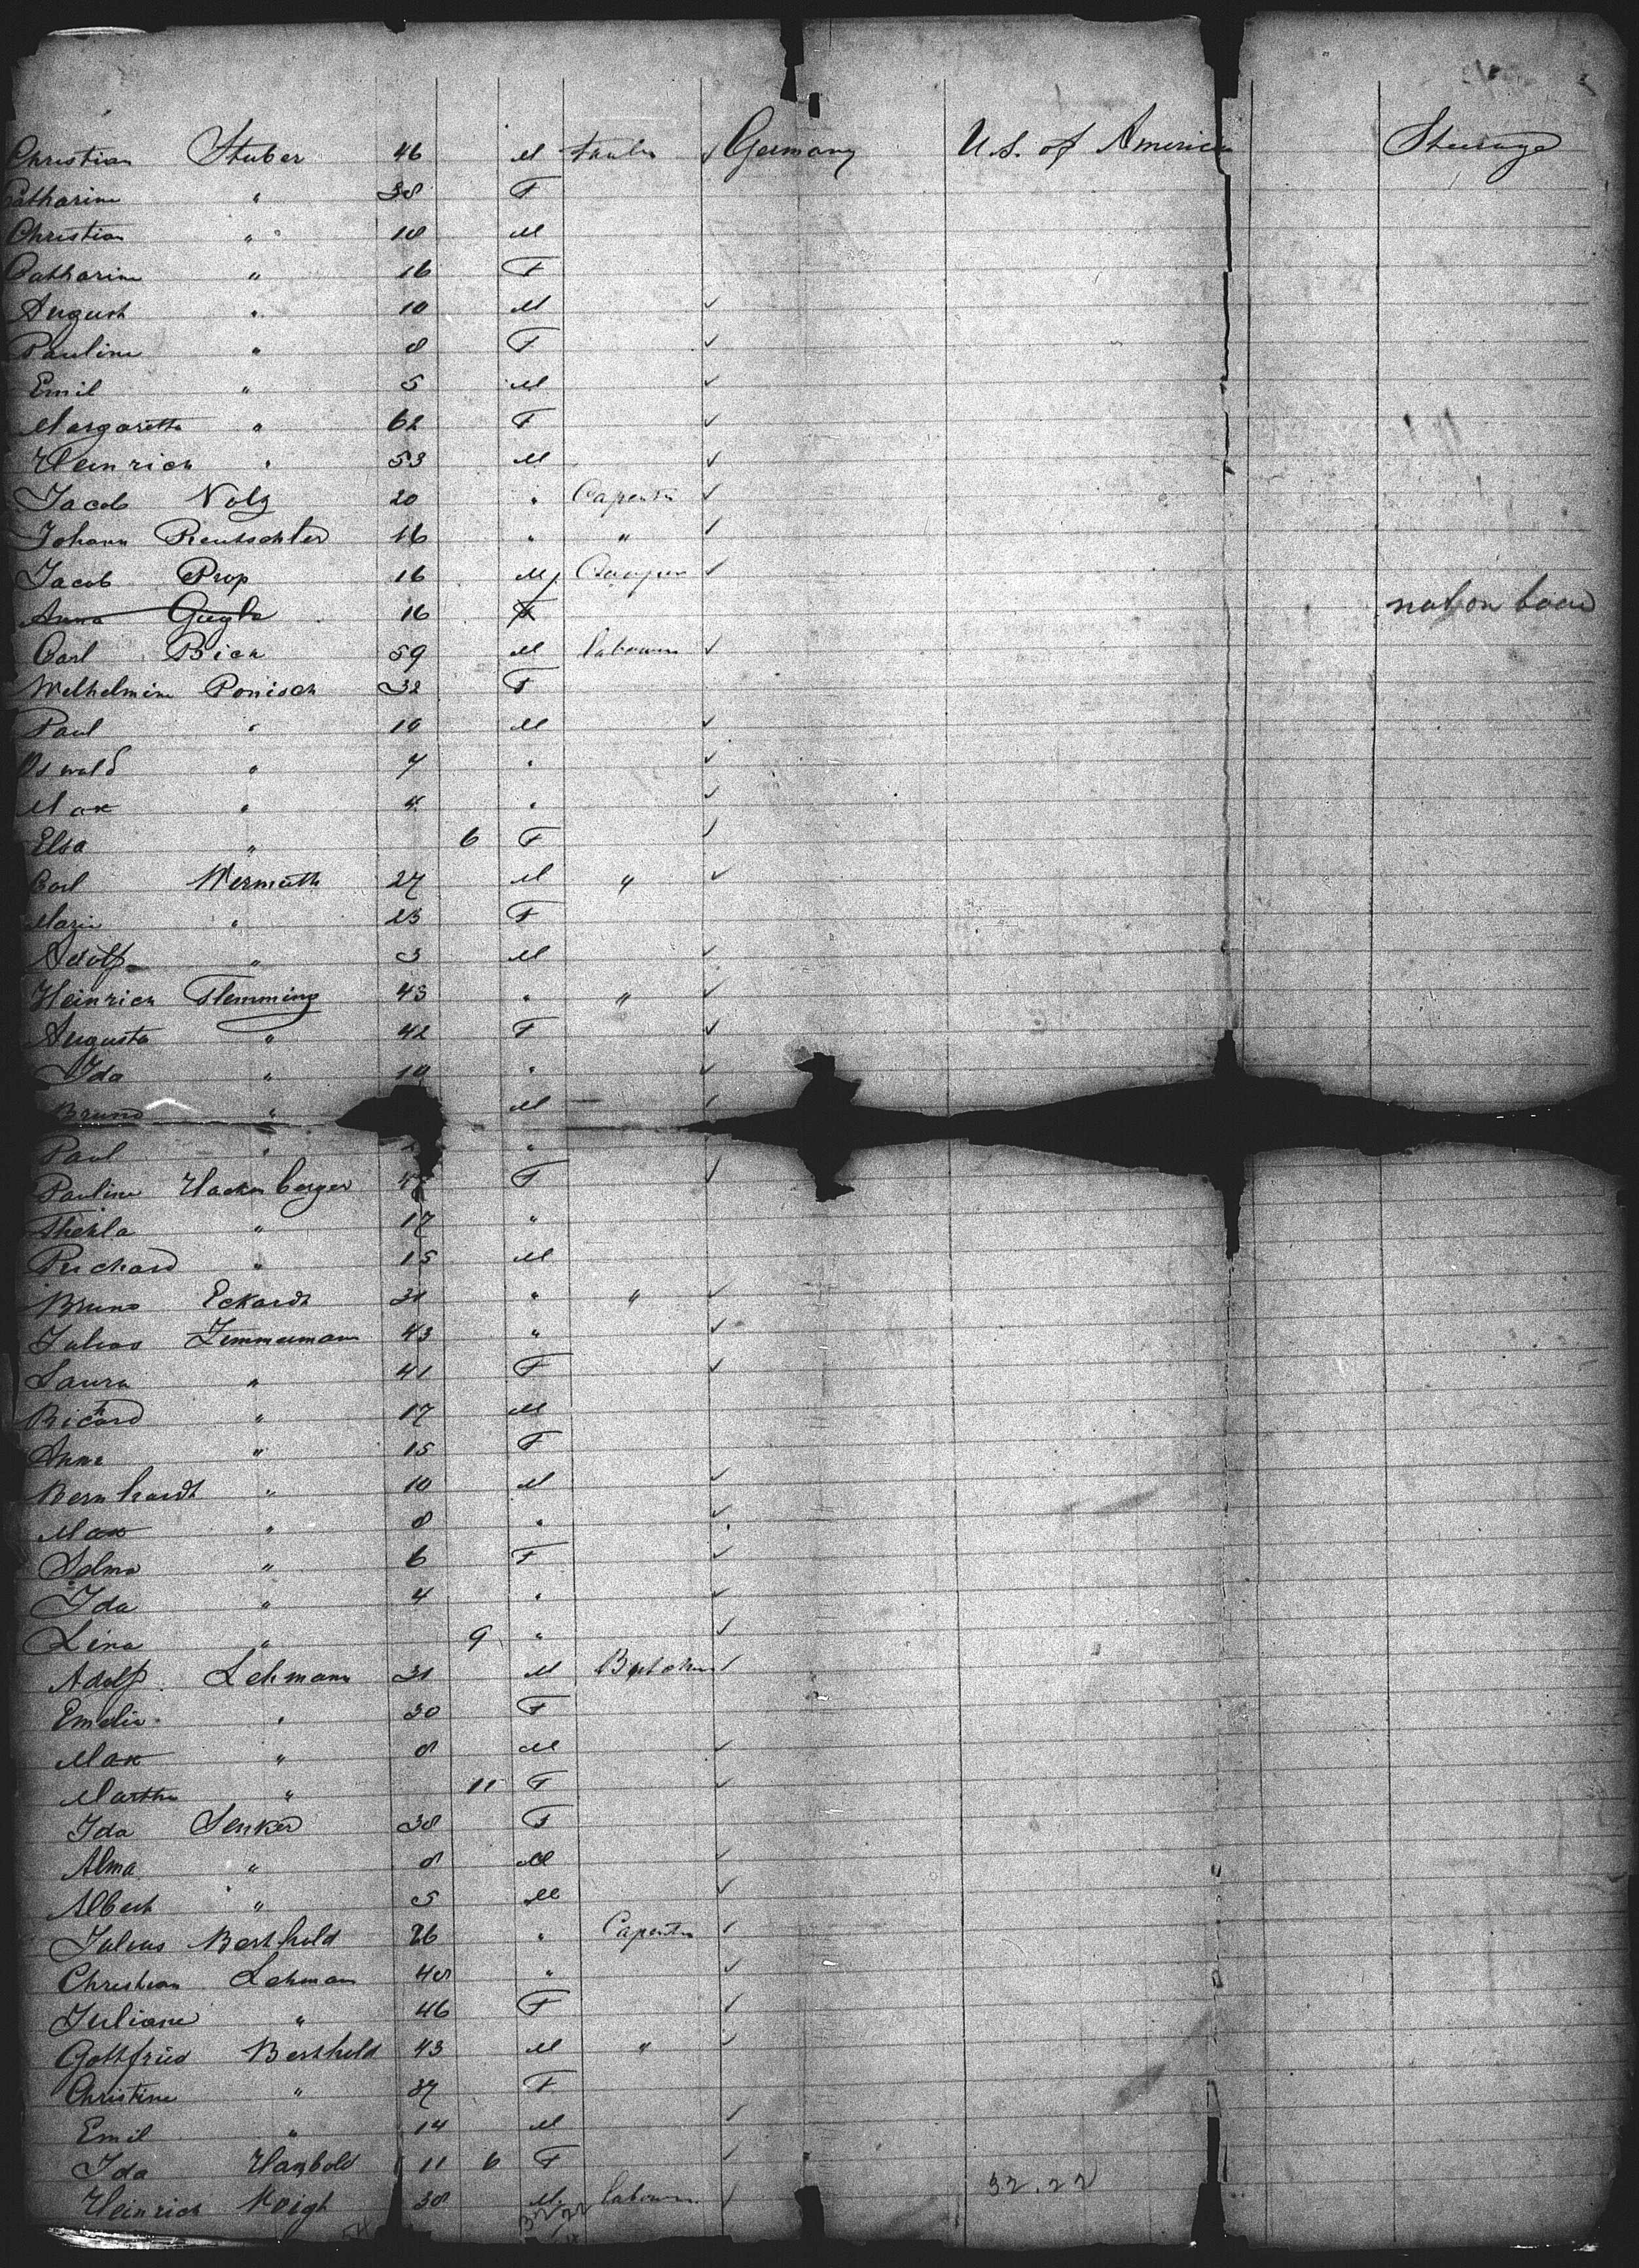 Christian Stuber 46 M Germany U.S. of America Steerage
Catharine " 38 F
Christian " 18 M
Catharine " 16 F
August " 10 M
Pauline " 8 F
Emil " 5 M
Margaretta " 62 F
Heinrich " 53 M
Jacob Nolz 20 "
Johann Rentschler 16 " "
Jacob Prop 16 M
Anna 16 F not on board
Carl Bick 59 M labourer
Wilhelmine Ponisch 32 F
Paul " 10 M
Oswald " 7 "
Max " 4 "
Elsa " 6 F
Carl Wermuth 27 M "
Marie " 23 F
Adolf " 3 M
Heinrich Flemming 43 " "
Augusta " 42 F
Ida " 10 "
Bruno " M
Paul " "
Pauline Hackenberger F
Thekla " 17 "
Richard " 15 M
Bruno Eckardt 31 " "
Julius Zimmermann 43 "
Laura " 41 F
Richard " 17 M
Anna " 15 F
Bernhardt " 10 M
Max " 8 "
Selma " 6 F
Ida " 4 "
Lina " 9 "
Adolf Lehmann 31 M
Emelie " 30 F
Max " 8 M
Martha " 11 F
Ida Senker 38 F
Alma " 8 M
Albert " 5 M
Julius Berthold 26 " Capenter
Christian Lehman 48 "
Juliane " 46 F
Gottfried Berthold 43 M "
Christine " 37 F
Emil " 14 M
Ida Haubold 11 6 F
Heinrich Voigt 38 M labourer 32.22